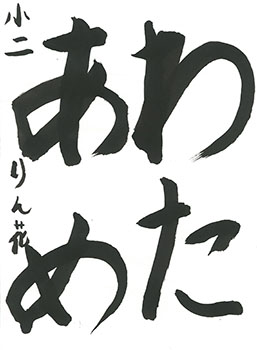 わた
あめ
小二 りん花